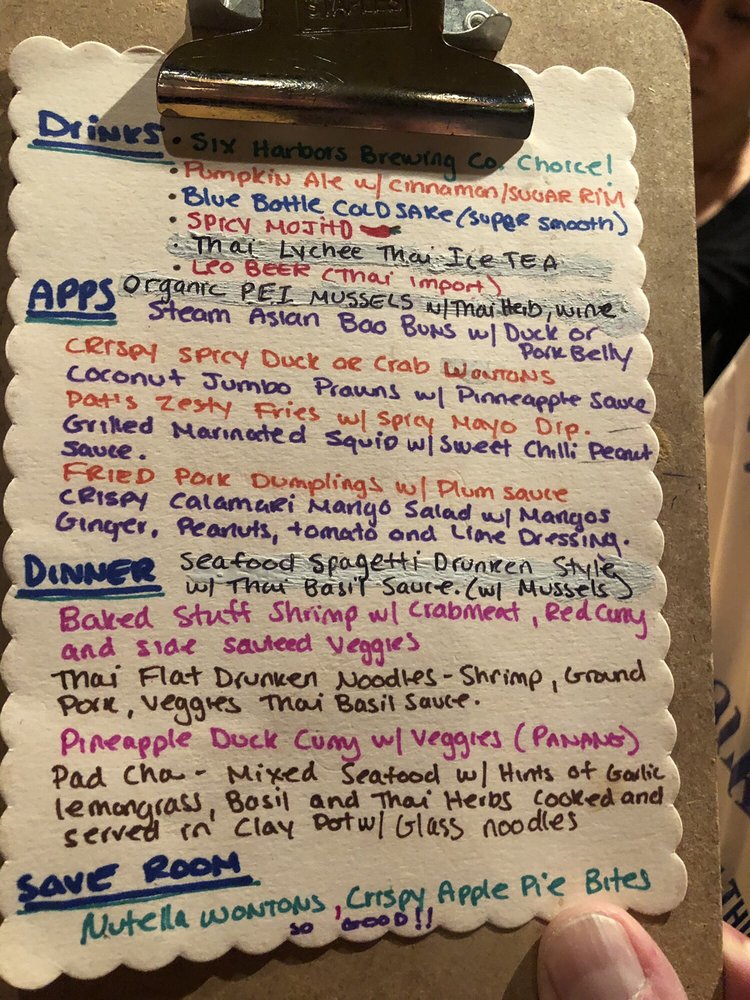 STAPLES
Drinks • Six Harbors Brewing Co. Choice!
• Pumpkin Ale w/ cinnamon/SUGAR RIM
• Blue Bottle COLD SAKE (super smooth)
• SPICY MOJITO
• Thai Lychee Thai Ice TEA
• LEO BEER (Thai import)
APPS Organic PEI MUSSELS w/Thai Herb, wine
Steam Asian Bao Buns w/ Duck or
Pork Belly
CRISPY SPICY Duck or Crab WONTONS
Coconut Jumbo Prawns w/ Pinneapple Sauce
Pati's Zesty Fries w/ Spicy Mayo Dip.
Grilled Marinated Squid w/ Sweet Chilli Peanut
Sauce.
FRIED Pork Dumplings w/ Plum sauce
CRISPY Calamari Mango Salad w/ Mangos
Ginger, Peanuts, tomato and Lime Dressing.
DINNER Seafood Spagetti Drunken Style
w/ Thai Basil Sauce. (w/ Mussels)
Baked Stuff Shrimp w/ Crabmeat, Red Curry
and side sauteed Veggies
Thai Flat Drunken Noodles - Shrimp, Ground
Pork, Veggies Thai Basil Sauce.
Pineapple Duck Curry w/ Veggies (PANANG)
Pad Cha - Mixed Seafood w/ Hints of Garlic
lemongrass, Basil and Thai Herbs cooked and
served in Clay Pot w/ Glass noodles
SAVE ROOM
Nutella WONTONS, Crispy Apple Pie Bites
so GOOD!!